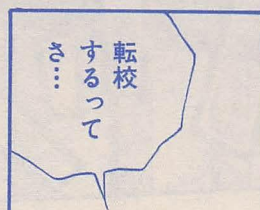 転校
するって
さ…